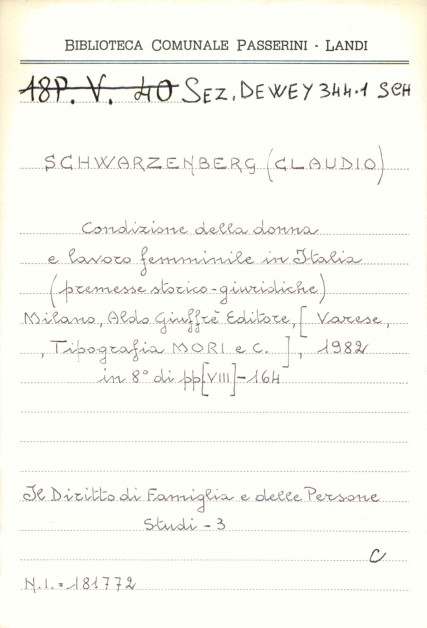 BIBLIOTECA COMUNALE PASSERINI - LANDI
18P. V. 40 SEZ. DEWEY 344.1 SCH
SCHWARZENBERG (CLAUDIO)
Condizione della donna
e lavoro femminile in Italia
(premesse storico-giuridiche)
Milano, Aldo Giuffrè Editore, [Varese,
, Tipografia MORI e C.], 1982
in 8° di pp[VIII]-164
Il Diritto di Famiglia e delle Persone
Studi - 3
C
N.I.=181772